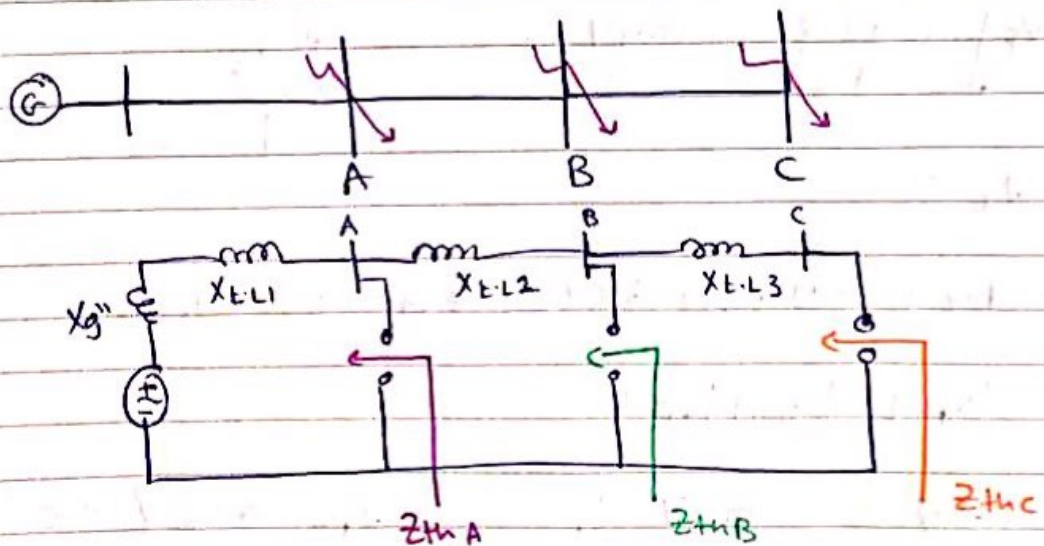 G
A B C
A B C
Xt.L1 Xt.L2 Xt.L3
Xg"
+
-
ZthA ZthB Zthc